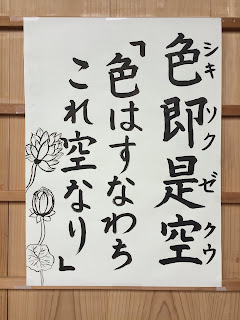 色即是空
シキソクゼクウ
「色はすなわち
これ空なり」